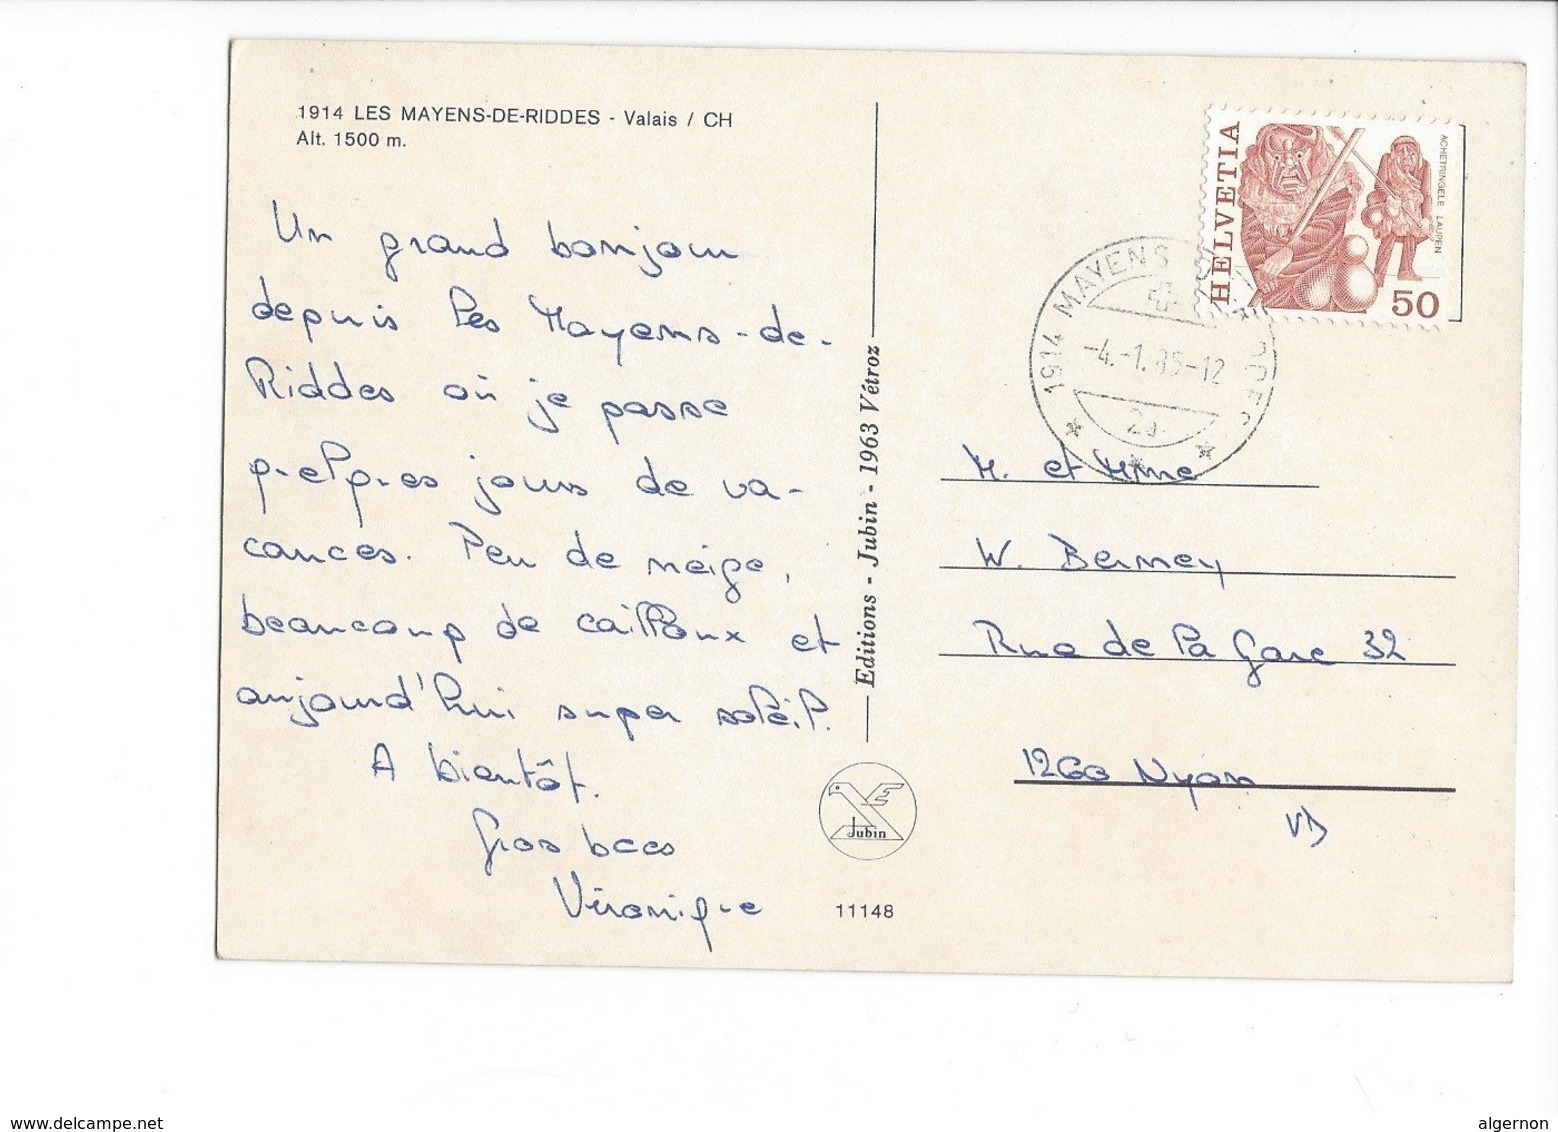 1914 LES MAYENS-DE-RIDDES - Valais / CH
Alt. 1500 m.
Un grand bonjour
depuis les Mayens-de-
Riddes où je passe
quelques jours de va-
cances. Peu de neige,
beaucoup de cailloux et
aujourd'hui super soleil.
A bientôt.
Gros becs
Véronique
Editions - Jubin - 1963 Vétroz
Jubin
11148
HELVETIA
ACHETRINGELE LAUPEN
50
1914 MAYENS
-4.-1.85-12
M. et Mme
W. Berney
Rue de la Gare 32
1260 Nyon
VD
www.delcampe.net
algernon